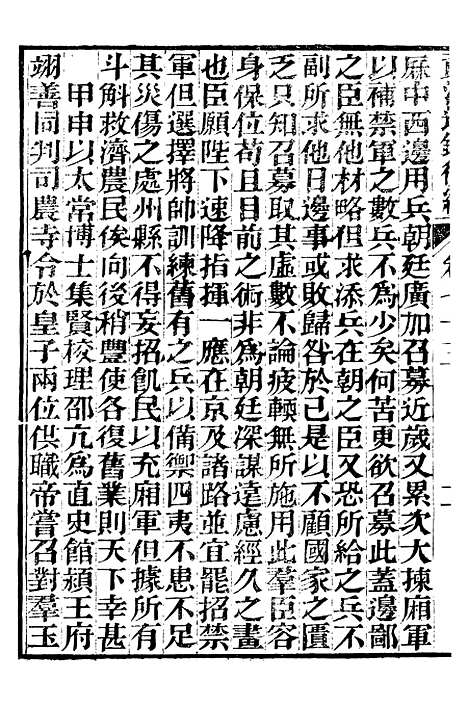 歷中西邊用兵朝廷廣加召募近歲又累次大揀厢軍
以補禁軍之數兵不為少矣何苦更欲召募此蓋邊鄙
之臣無他材略但求添兵在朝之臣又恐所給之兵不
副所求他日邊事或敗歸咎於己是以不顧國家之匱
乏只知召募取其虛數不論疲輭無所施用此羣臣容
身保位苟且目前之術非為朝廷深謀遠慮經久之畫
也臣願陛下速降指揮一應在京及諸路並宜罷招禁
軍但選擇將帥訓練舊有之兵以備禦四夷不患不足
其災傷之處州縣不得妄招飢民以充厢軍但據所有
斗斛救濟農民俟向後稍豐使各復舊業則天下幸甚
甲申以太常博士集賢校理邵亢為直史館潁王府
翊善同判司農寺令於皇子兩位供職帝嘗召對羣玉